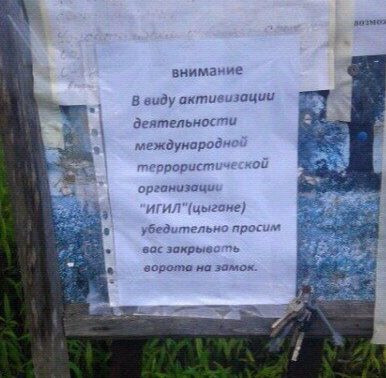 внимание
В виду активизации
деятельности
международной
террористической
организации
"ИГИЛ"(цыгане)
убедительно просим
вас закрывать
ворота на замок.